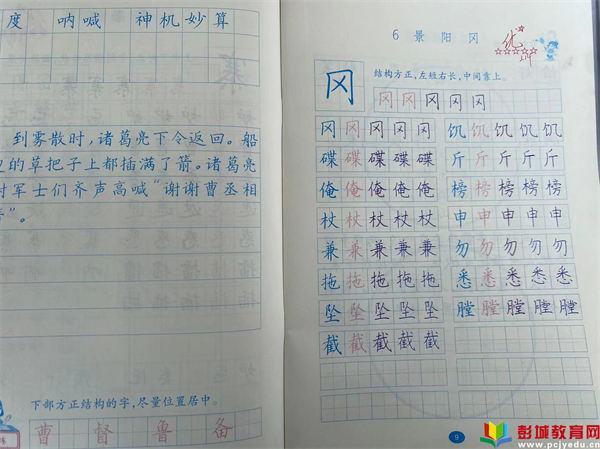 度 呐喊 神机妙算
到雾散时，诸葛亮下令返回。船
的草把子上都插满了箭。诸葛亮
军士们齐声高喊“谢谢曹丞相
”。
下部方正结构的字，尽量位置居中。
曹 督 鲁 备
6 景阳冈
优
结构方正，左短右长，中间靠上。
冈
冈 冈 冈 冈 冈
冈 冈 冈 冈 冈 饥 饥 饥 饥 饥
碟 碟 碟 碟 碟 斤 斤 斤 斤 斤
俺 俺 俺 俺 俺 榜 榜 榜 榜 榜
杖 杖 杖 杖 杖 申 申 申 申 申
兼 兼 兼 兼 兼 勿 勿 勿 勿 勿
拖 拖 拖 拖 拖 悉 悉 悉 悉 悉
坠 坠 坠 坠 坠 膛 膛 膛 膛 膛
截 截 截 截 截
9
彭城教育网
www.pcjyedu.cn